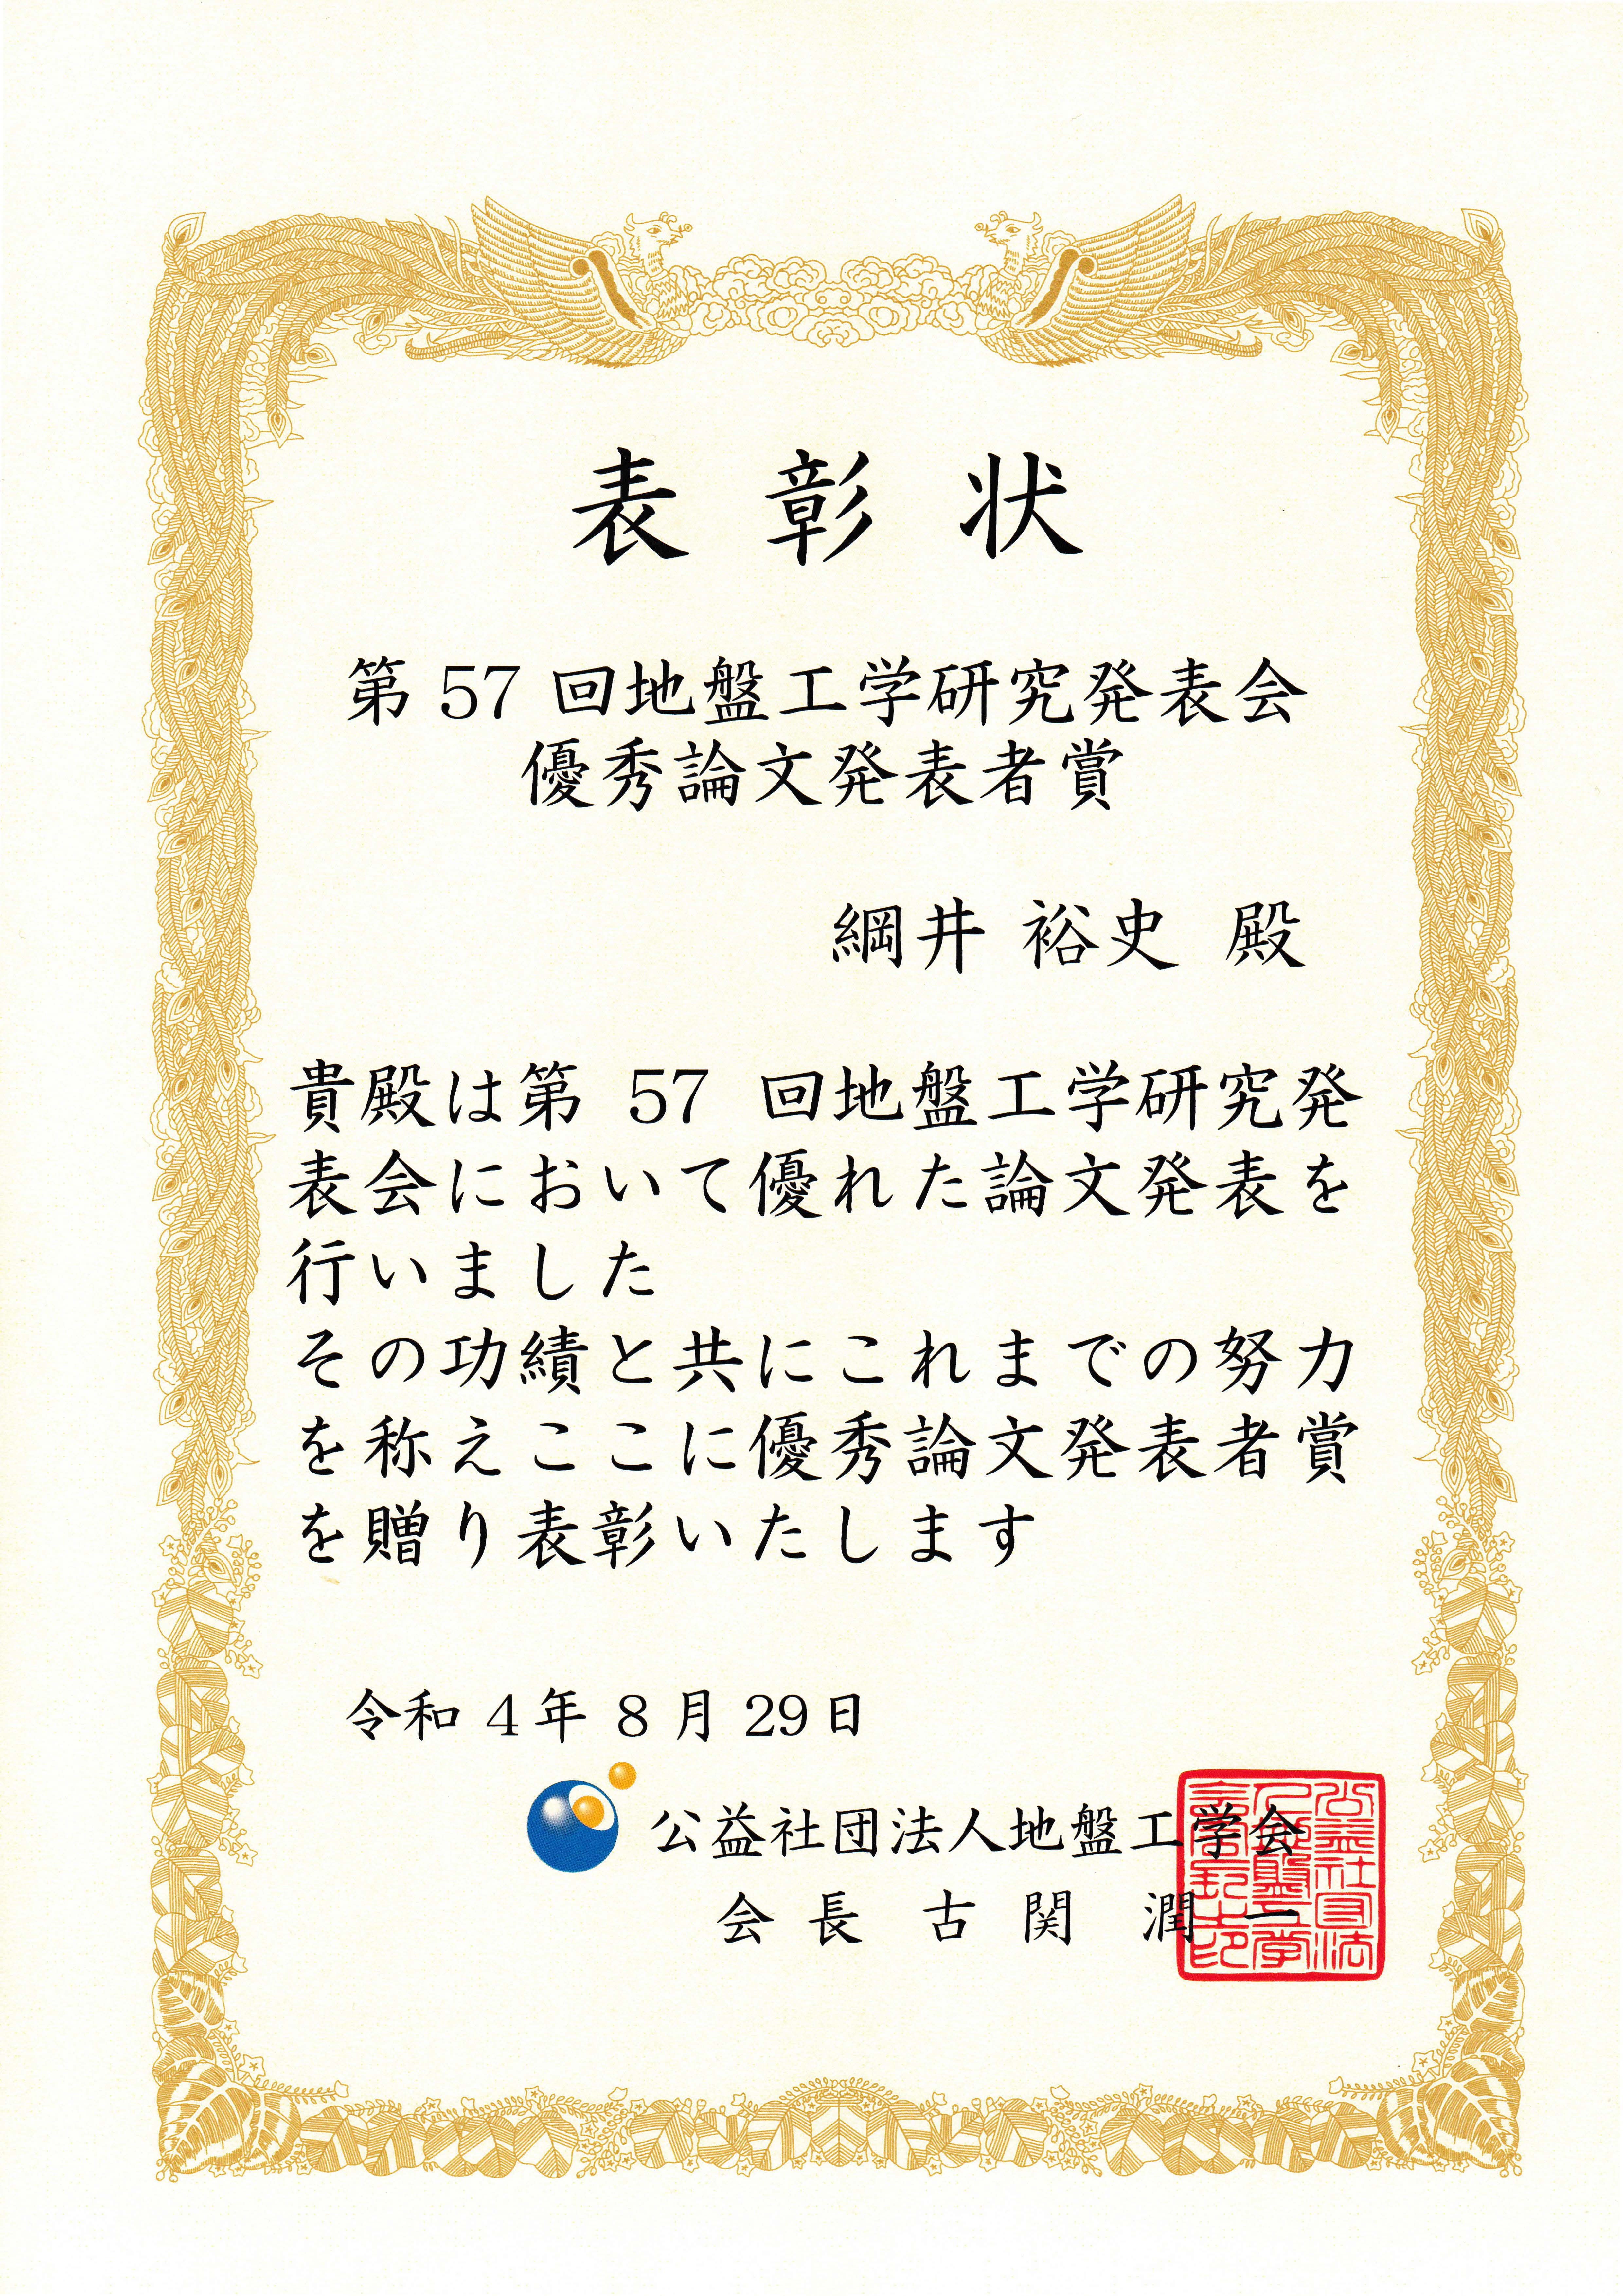 表彰状
第 57 回地盤工学研究発表会
優秀論文発表者賞
綱井 裕史 殿
貴殿は第 57 回地盤工学研究発
表会において優れた論文発表を
行いました
その功績と共にこれまでの努力
を称えここに優秀論文発表者賞
を贈り表彰いたします
令和 4 年 8 月 29 日
公益社団法人地盤工学会
会長 古関 潤一